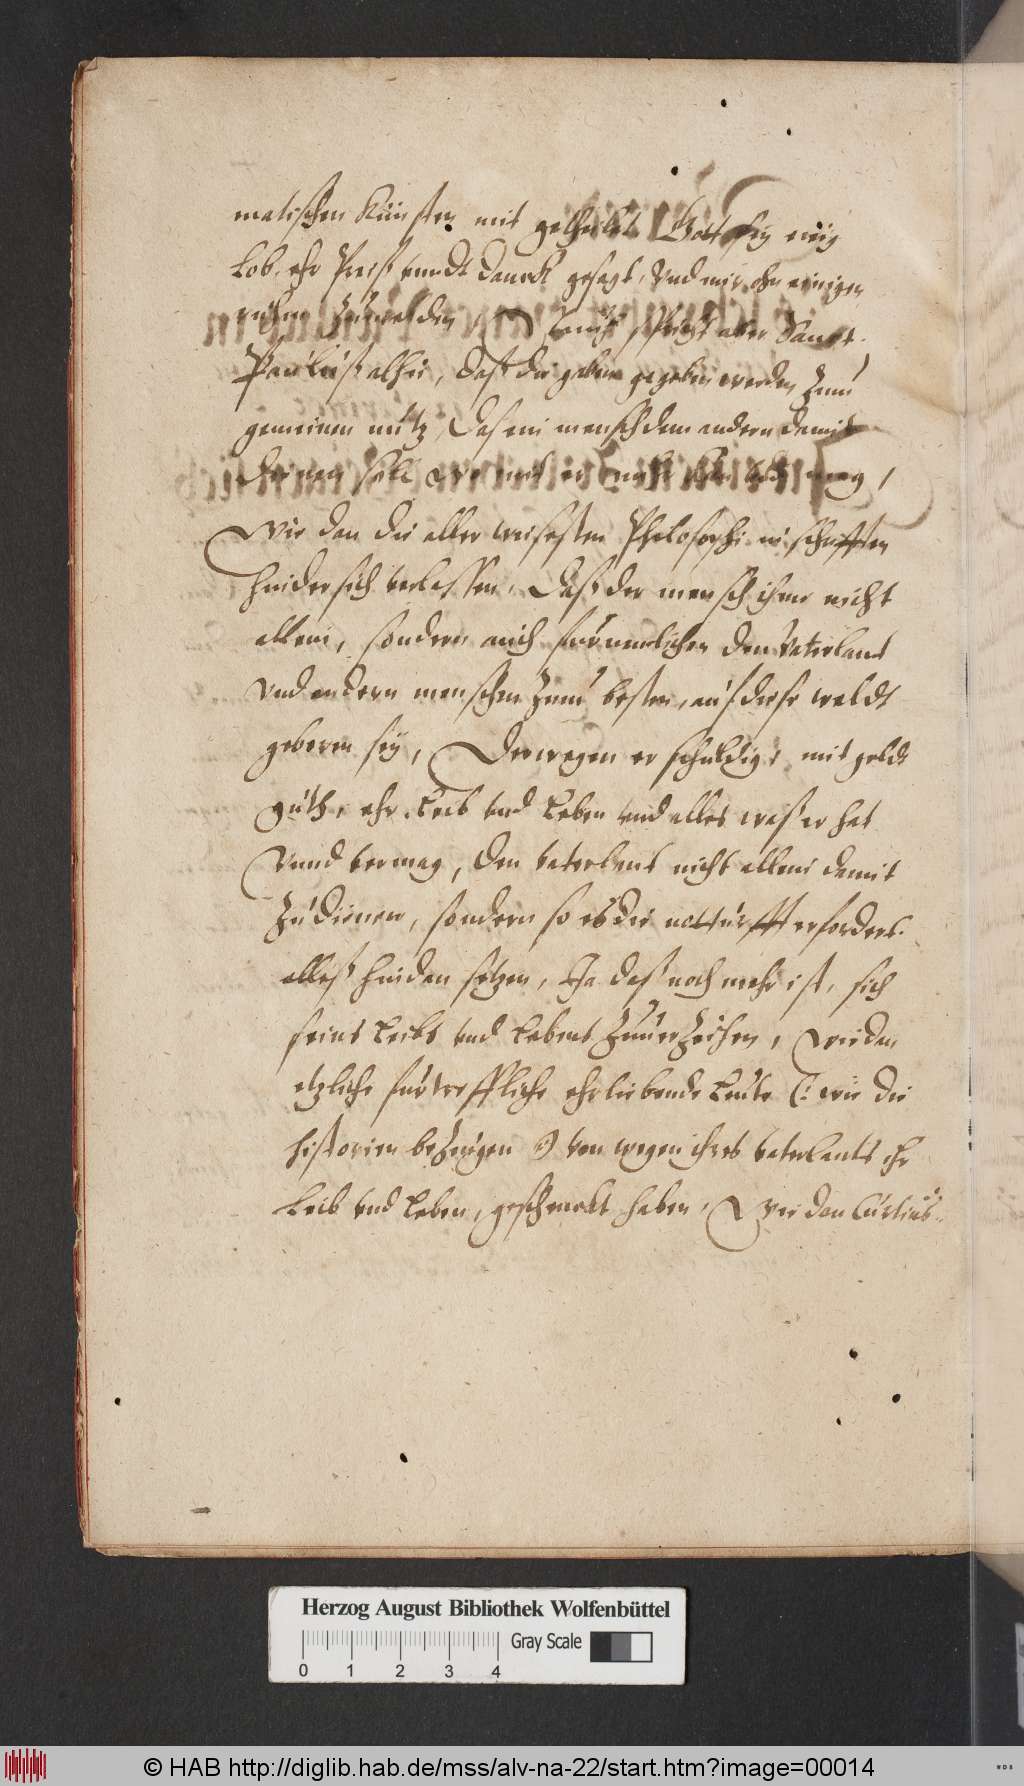 matischen Künsten mit getheilet Gott seÿ ewig
Lob, ehr Preiß vnndt danck gesagt, Vnd mir ohn einigen
ruhm zumelden, Sonst spricht aber Sanct.
Paulus alhie, daß die gaben gegeben werden zum
gemeinen nutz, das ein mensch dem andern damit
dienen soll, wo mit er nuhr kan vnd mag,
Wie dan die aller weisesten Philosophi in schrifften
hindersich verlassen, Daß der mensch ihme nicht
allein, sondern auch fürnemlichen den Vaterlant
vnd andern menschen zum besten, auf diese weldt
geboren seÿ, Derwegen er schuldig, mit geldt
guth, ehr, Leib vnd Leben vnd alles was er hat
Vnnd vermag, den vaterlant nicht allein damit
zu dienen, sondern so es die notturfft erfordert.
alleß hindan setzen, Ja daß noch mehr ist, sich
seines Leibs vnd Lebens zuuerzeihen, wie dan
etzliche fürtreffliche ehrliebende Leute (: wie die
historien bezeugen :) von wegen ihres vaterlants ihr
Leib vnd Leben, geschmält haben, Wie dan Curtius
Herzog August Bibliothek Wolfenbüttel
0 1 2 3 4 Gray Scale
© HAB http://diglib.hab.de/mss/alv-na-22/start.htm?image=00014